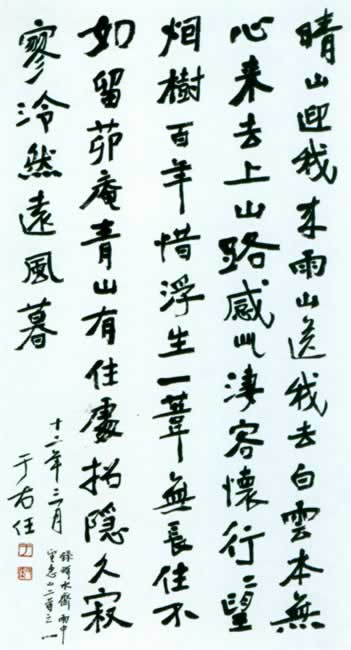 晴山迎我来雨山送我去白雲本無
心来去上山路感此淒客懷行〻望
烟樹百年惜浮生一葦無長住不
如留茆庵青山有住處招隱久寂
寥泠然遠風暮
十二年三月
于右任
水齋雨中
二首之一